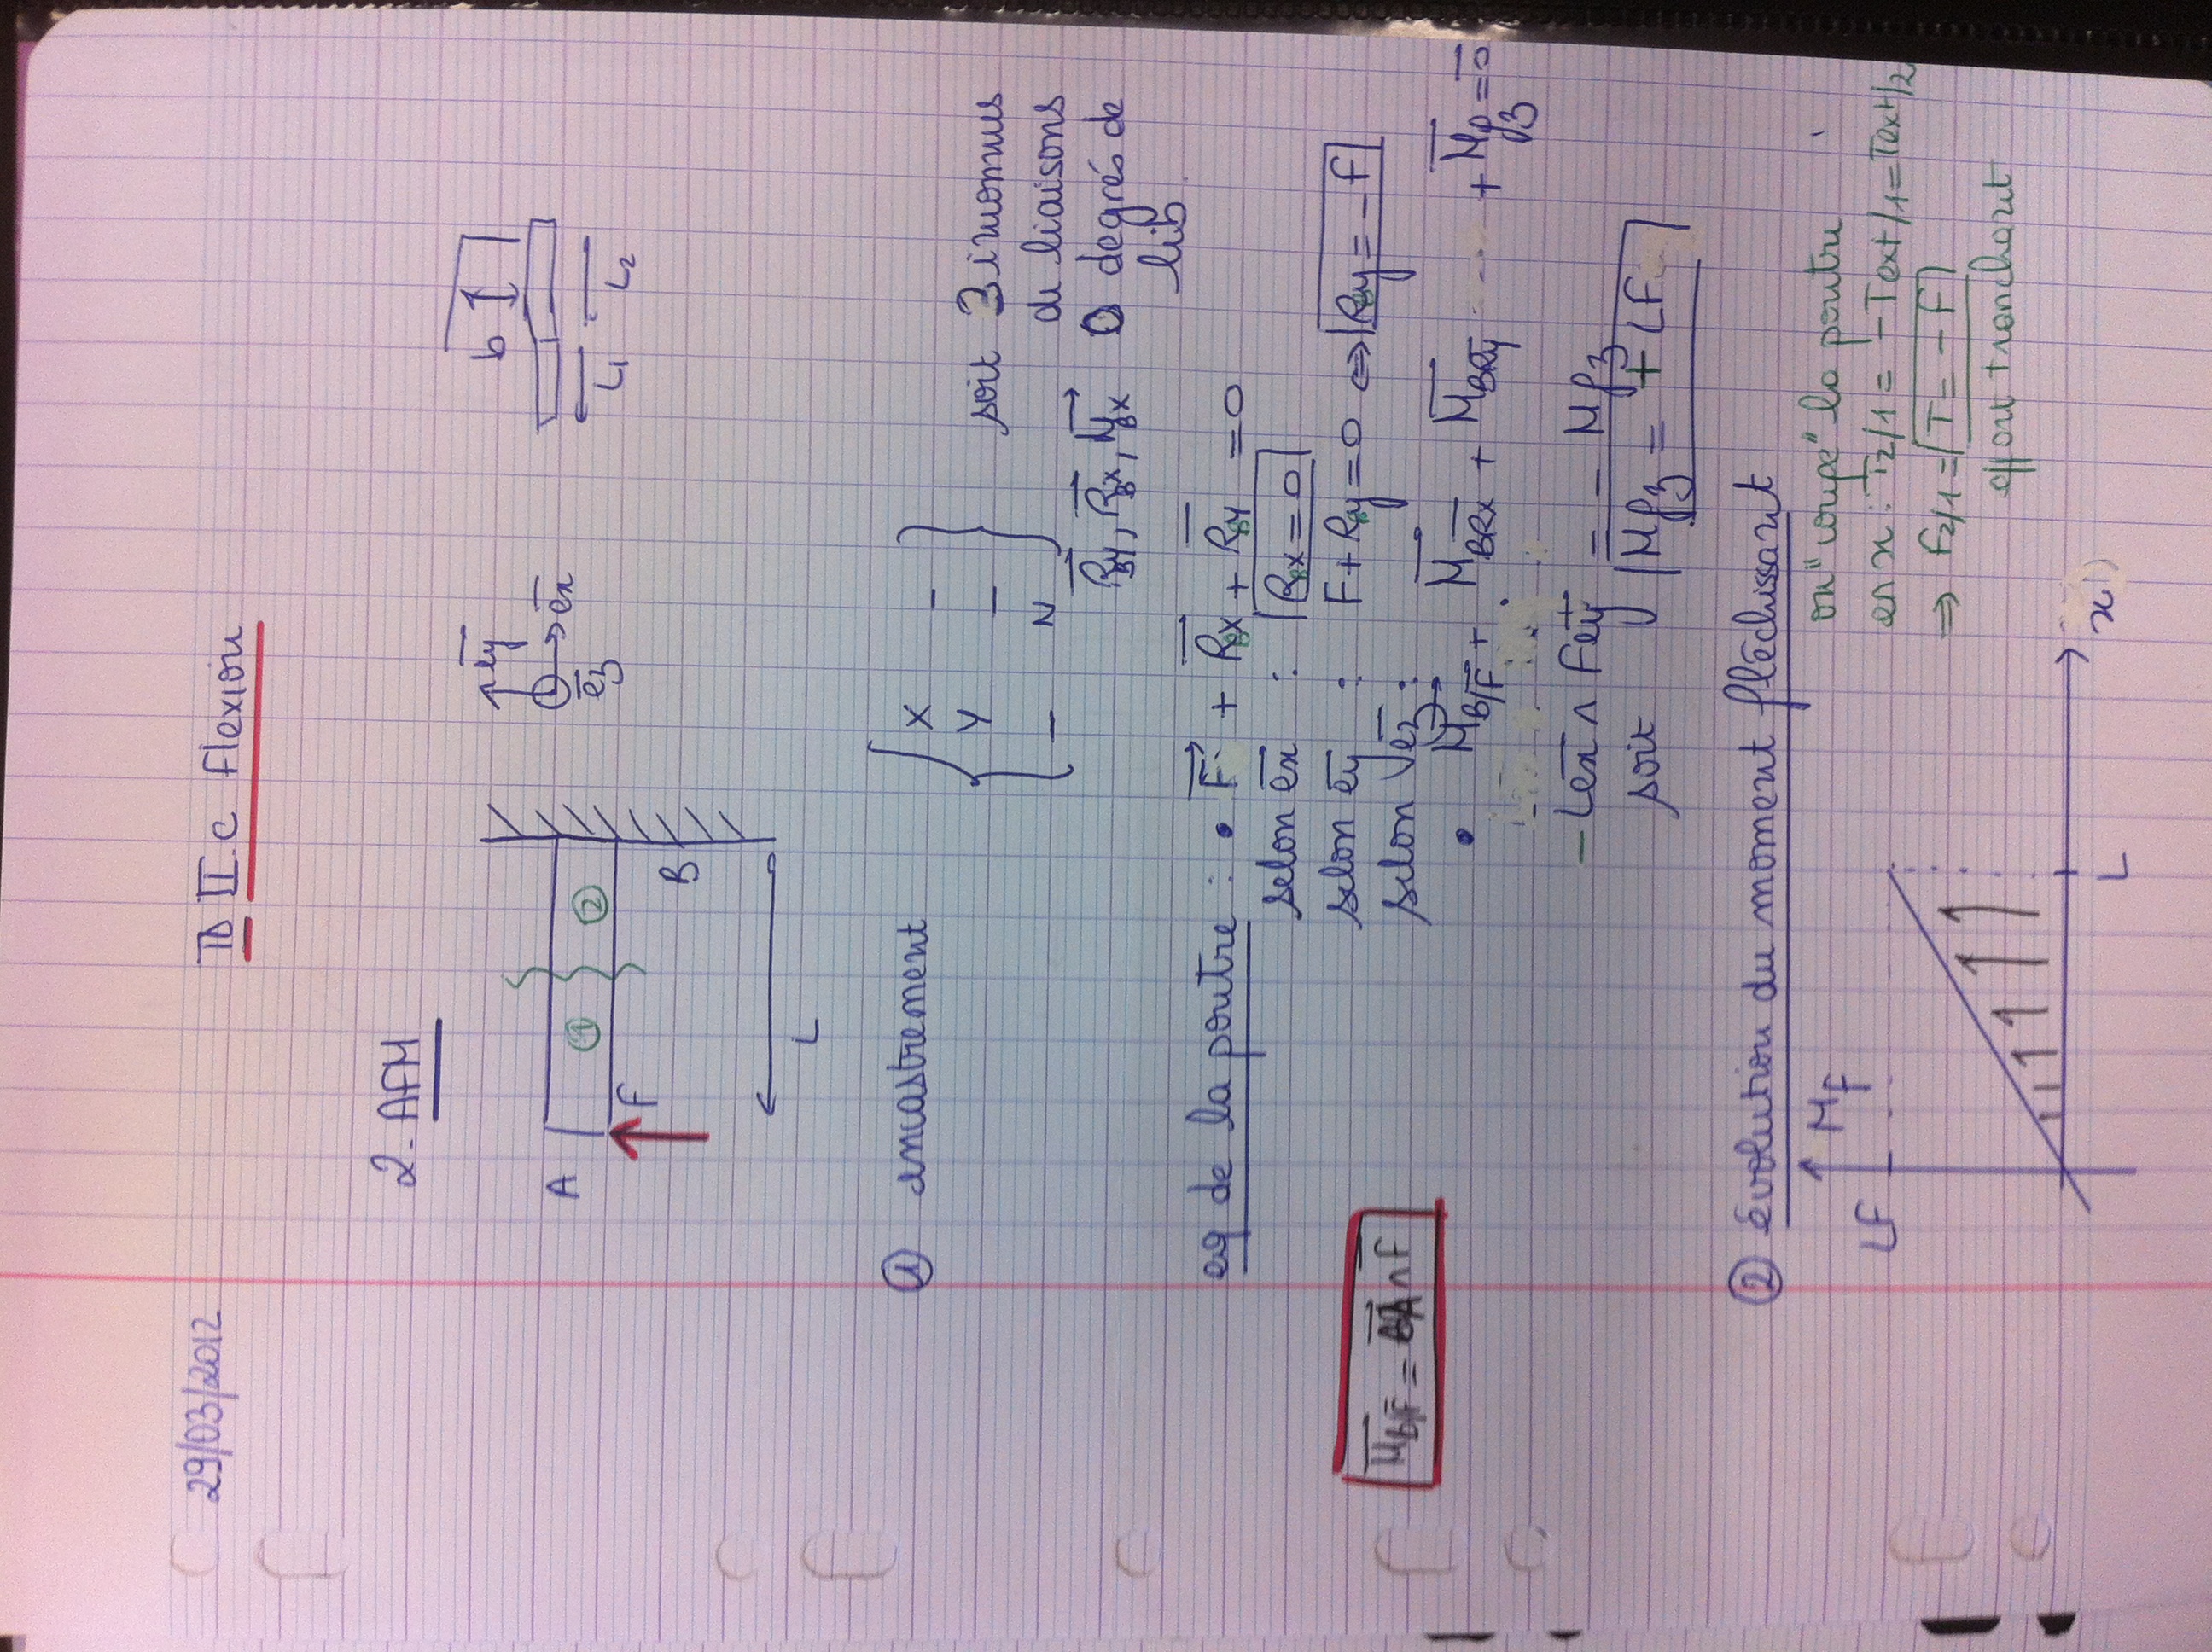 29/03/2012
TD II.c Flexion
2- AFM
A
①
②
F
B
L
ey
ex
ez
b
L1
L2
① encastrement
X -
Y -
- N
soit 3 inconnus
de liaisons
RBy, RBx, MBx 0 degrés de
lib.
eq de la poutre : • F + RBx + RBy = 0
selon ex : RBx = 0
selon ey : F + RBy = 0 ⇔ RBy = - F
MB/F = BA ∧ F
selon ez :
• MB/F + MBRx + MBRy + Mfz = 0
- Lex ∧ Fey = - Mfz
soit Mfz = + LF
② évolution du moment fléchissant
MF
LF
L
x
on "coupe" la poutre
en x : T2/1 = - Text/1 = Text/2
⇒ F2/1 = T = - F
effort tranchant